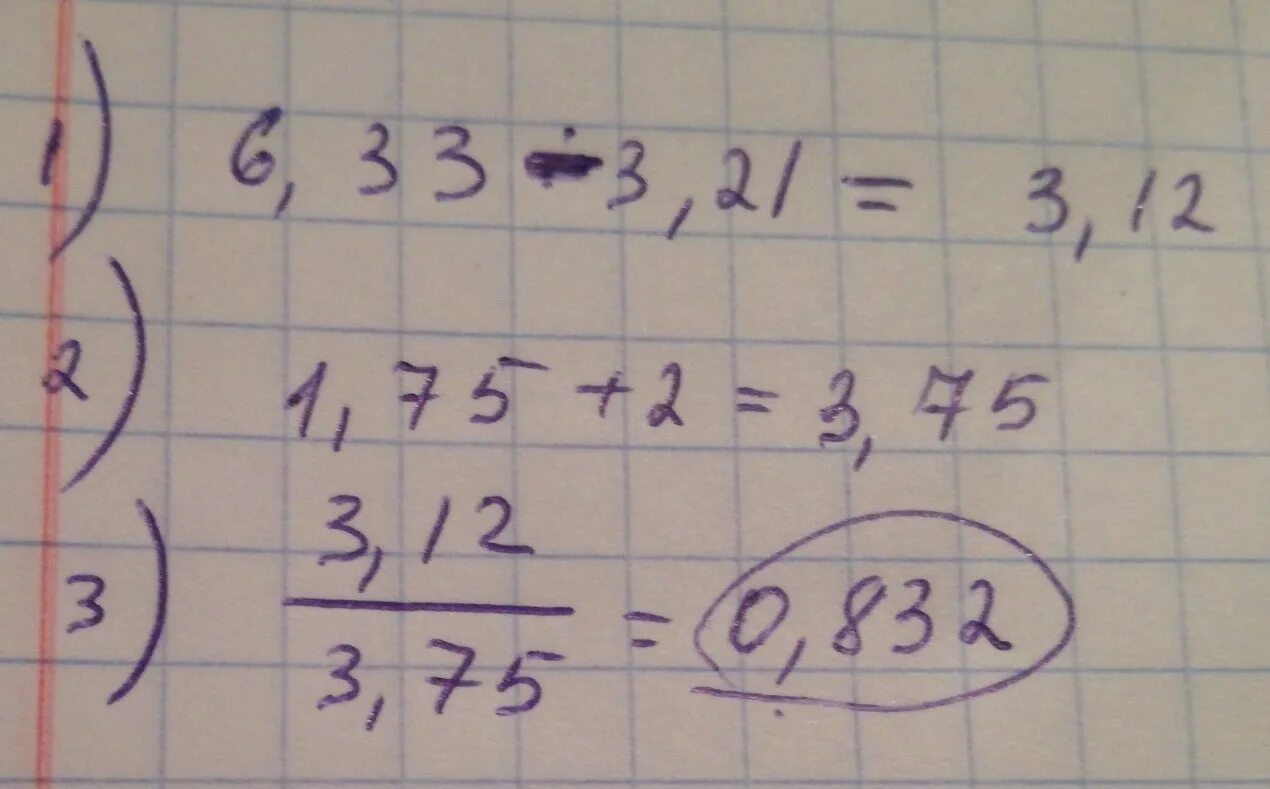 1) 6,33 - 3,21 = 3,12
2) 1,75 + 2 = 3,75
3) 3,12 / 3,75 = 0,832